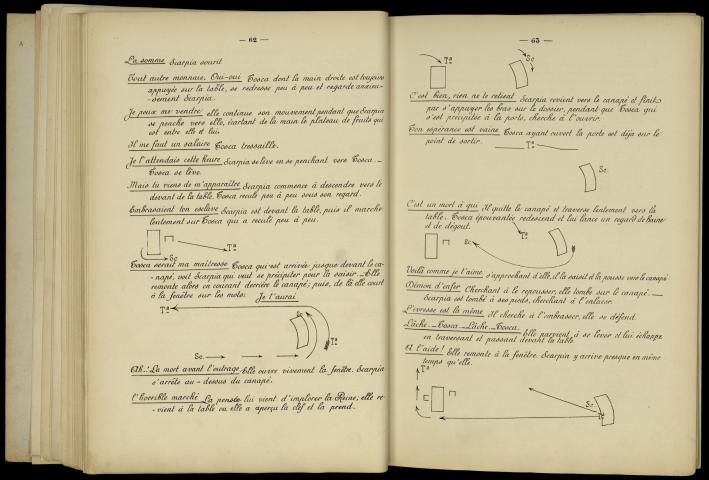 — 62 —
La somme Scarpia sourit
Tout autre monnaie. Oui-oui Tosca dont la main droite est toujours
appuyée sur la table, se redresse peu à peu et regarde anxieu-
-sement Scarpia.
Je peux me vendre elle continue son mouvement pendant que Scarpia
se penche vers elle, écartant de la main le plateau de fruits qui
est entre elle et lui.
Il me faut un salaire Tosca tressaille.
Je l'attendais cette heure Scarpia se lève en se penchant vers Tosca _
Tosca se lève.
Mais tu viens de m'apparaître Scarpia commence à descendre vers le
devant de la table. Tosca recule peu à peu sous son regard.
Embrasaient ton esclave Scarpia est devant la table, puis il marche
lentement sur Tosca qui a reculé peu à peu.
Tª
Sc
Tosca serait ma maîtresse Tosca qui est arrivée jusque devant le ca-
-napé, voit Scarpia qui veut se précipiter pour la saisir. Elle
remonte alors en courant derrière le canapé; puis, de là elle court
à la fenêtre sur les mots: Je l'aurai
Tª
Sc
Sc.
Tª
Ah! La mort avant l'outrage Elle ouvre vivement la fenêtre. Scarpia
s'arrête au-dessus du canapé.
l'horrible marché La pensée lui vient d'implorer la Reine; elle re-
-vient à la table où elle a aperçu la clef et la prend.
— 63 —
Tª
Sc
C'est bien, rien ne te retient Scarpia revient vers le canapé et finit
par s'appuyer les bras sur le dossier, pendant que Tosca qui
s'est précipitée à la porte, cherche à l'ouvrir.
Ton espérance est vaine Tosca ayant ouvert la porte est déjà sur le
point de sortir.
Tª
Sc.
C'est un mort à qui Il quitte le canapé et traverse lentement vers la
table. Tosca épouvantée redescend et lui lance un regard de haine
et de dégoût.
Tª
Sc
Voilà comme je t'aime s'approchant d'elle, il la saisit et la pousse vers le canapé
Démon d'enfer Cherchant à le repousser, elle tombe sur le canapé. _
Scarpia est tombé à ses pieds, cherchant à l'enlacer.
L'ivresse est la même Il cherche à l'embrasser, elle se défend.
Lâche_Tosca_Lâche_Tosca. Elle parvient à se lever et lui échappe
en traversant et passant devant la table.
A l'aide! Elle remonte à la fenêtre. Scarpia y arrive presque en même
temps qu'elle.
Tª
Sc
Tª